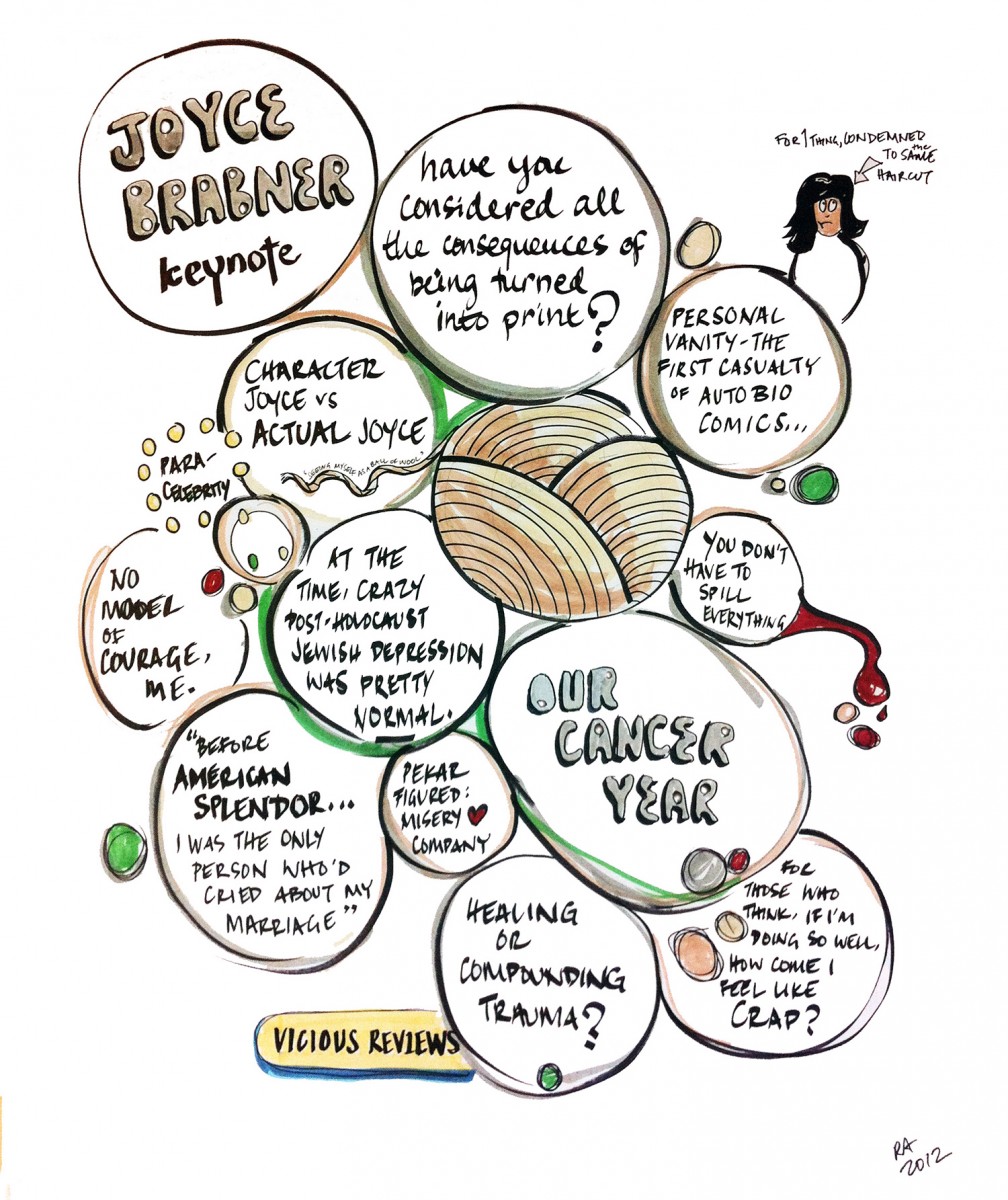 JOYCE
BRABNER
keynote
have you
considered all
the consequences of
being turned
into print?
FOR 1 THING, CONDEMNED
TO the SAME
HAIRCUT
PERSONAL
VANITY-THE
FIRST CASUALTY
OF AUTOBIO
COMICS...
CHARACTER
JOYCE VS
ACTUAL JOYCE
"SEEING MYSELF AS A BALL OF WOOL"
PARA-
CELEBRITY
NO
MODEL
OF
COURAGE,
ME.
AT THE
TIME, CRAZY
POST-HOLOCAUST
JEWISH DEPRESSION
WAS PRETTY
NORMAL.
YOU DON'T
HAVE TO
SPILL
EVERYTHING
OUR
CANCER
YEAR
"BEFORE
AMERICAN
SPLENDOR...
I WAS THE ONLY
PERSON WHO'D
CRIED ABOUT MY
MARRIAGE"
PEKAR
FIGURED:
MISERY ♥
COMPANY
HEALING
OR
COMPOUNDING
TRAUMA?
FOR
THOSE WHO
THINK, IF I'M
DOING SO WELL,
HOW COME I
FEEL LIKE
CRAP?
VICIOUS REVIEWS
RA
2012